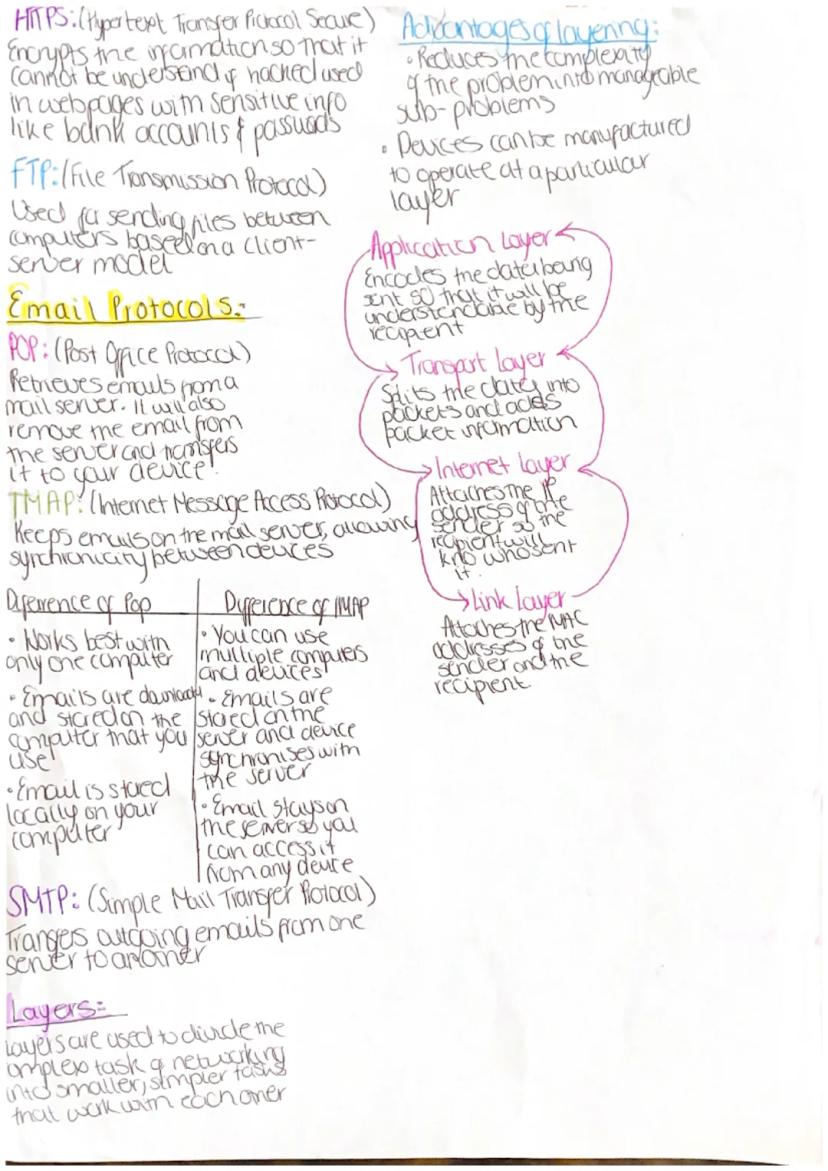 HTTPS: (Hypertext Transfer Protocol Secure)
Encrypts the information so that it
cannot be understand if hacked used
in webpages with sensitive info
like bank accounts & passwords
FTP: (File Transmission Protocol)
Used for sending files between
computers based on a client-
server model
Email Protocols:-
POP: (Post Office Protocol)
Retrieves emails from a
mail server. It will also
remove the email from
the server and transfers
it to your device.
IMAP: (Internet Message Access Protocol)
Keeps emails on the mail server, allowing
synchronicity between devices
Diferrence of Pop
• Works best with
only one computer
• Emails are download
and stored on the
computer that you
use
• Email is stored
locally on your
computer
Difference of IMAP
• You can use
multiple computers
and devices
• Emails are
stored on the
server and device
synchronises with
the server
• Email stays on
the server so you
can access it
from any device
SMTP: (Simple Mail Transfer Protocol)
Transfers outgoing emails from one
server to another
Layers:-
Layers are used to divide the
omplex task of networking
into smaller, simpler tasks
that work with each other
Advantages of layering:
• Reduces the complexity
of the problem into manageable
sub-problems
• Devices can be manufactured
to operate at a particular
layer
Application Layer
Encodes the data being
sent so that it will be
understandable by the
recipient
Transport layer
Splits the data into
packets and adds
packet information
Internet layer
Attaches the IP
address of the
sender so the
recipient will
kno who sent
it.
Link layer
Attaches the MAC
addresses of the
sender and the
recipient